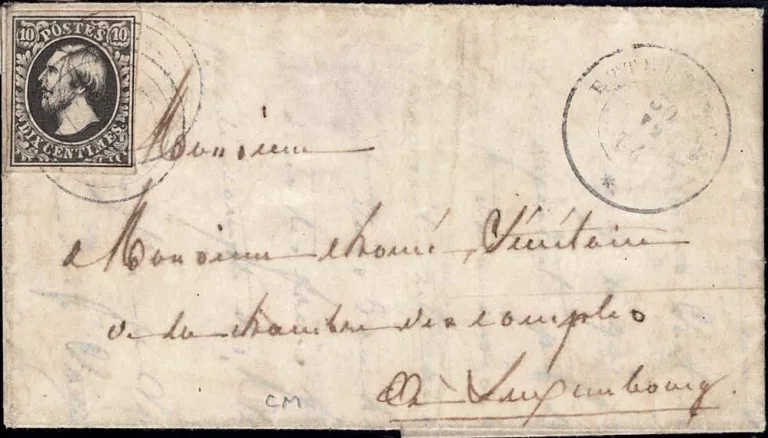 10 POSTES 10
DIX CENTIMES
Monsieur
à Monsieur Sécrétaire
de la chambre des comptes
à Luxembourg.
CM